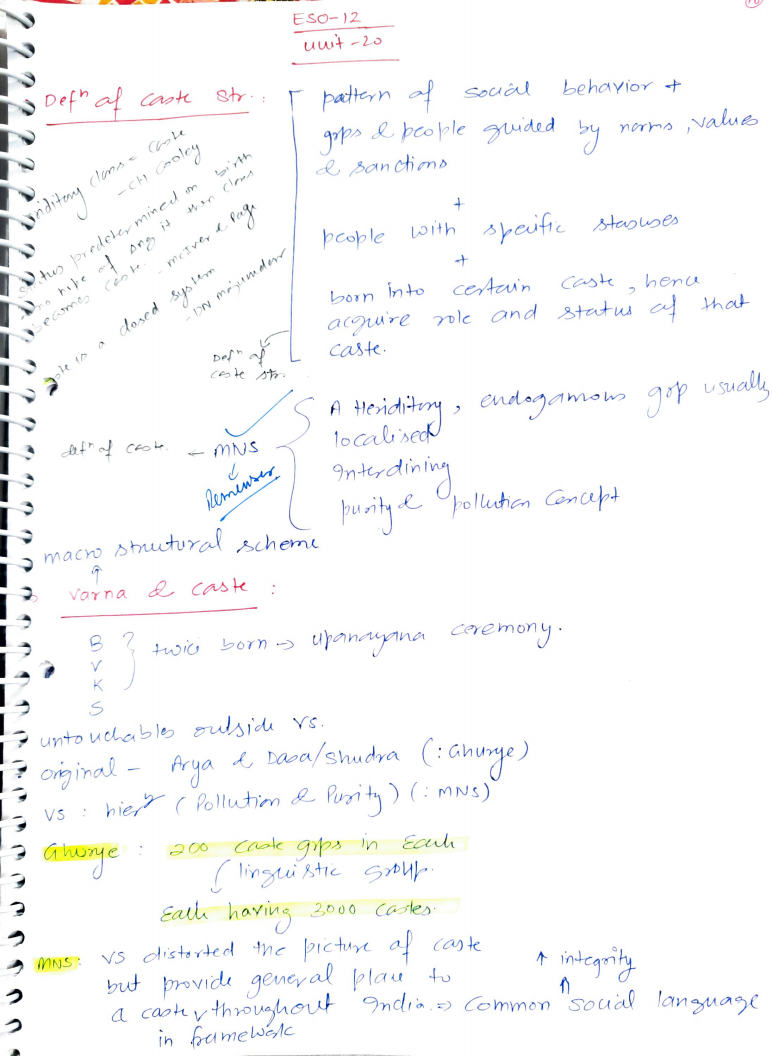 ESO-12
unit-20
Defⁿ of caste str. :
pattern of social behavior +
grps & people guided by norms, values
& sanctions
+
people with speific stasuses
+
born into certain caste, hence
acquire role and status of that
caste.
Defⁿ of
caste str.
class = caste
- CH Cooley
predetermined on birth
of any it then class
becomes caste. - mciver & Page
is a closed system
- DN majumdar
defⁿ of caste - MNS
Remember
A Heriditory, endogamous grp usually
localised
Interdining
purity & pollution concept
macro structural scheme
↑
varna & caste :
B
V
K
S
twice born → upanayana ceremony.
untouchables outside vs.
original - Arya & Dasa/Shudra (: Ghurye)
vs : hierʸ (Pollution & Purity) (: MNS)
Ghurye : 200 caste grps in Each
linguistic group.
Each having 3000 castes.
MNS: vs distorted the picture of caste
but provide general place to
a caste throughout India. ⇒ common social language
in framework
↑ integrity
⇑